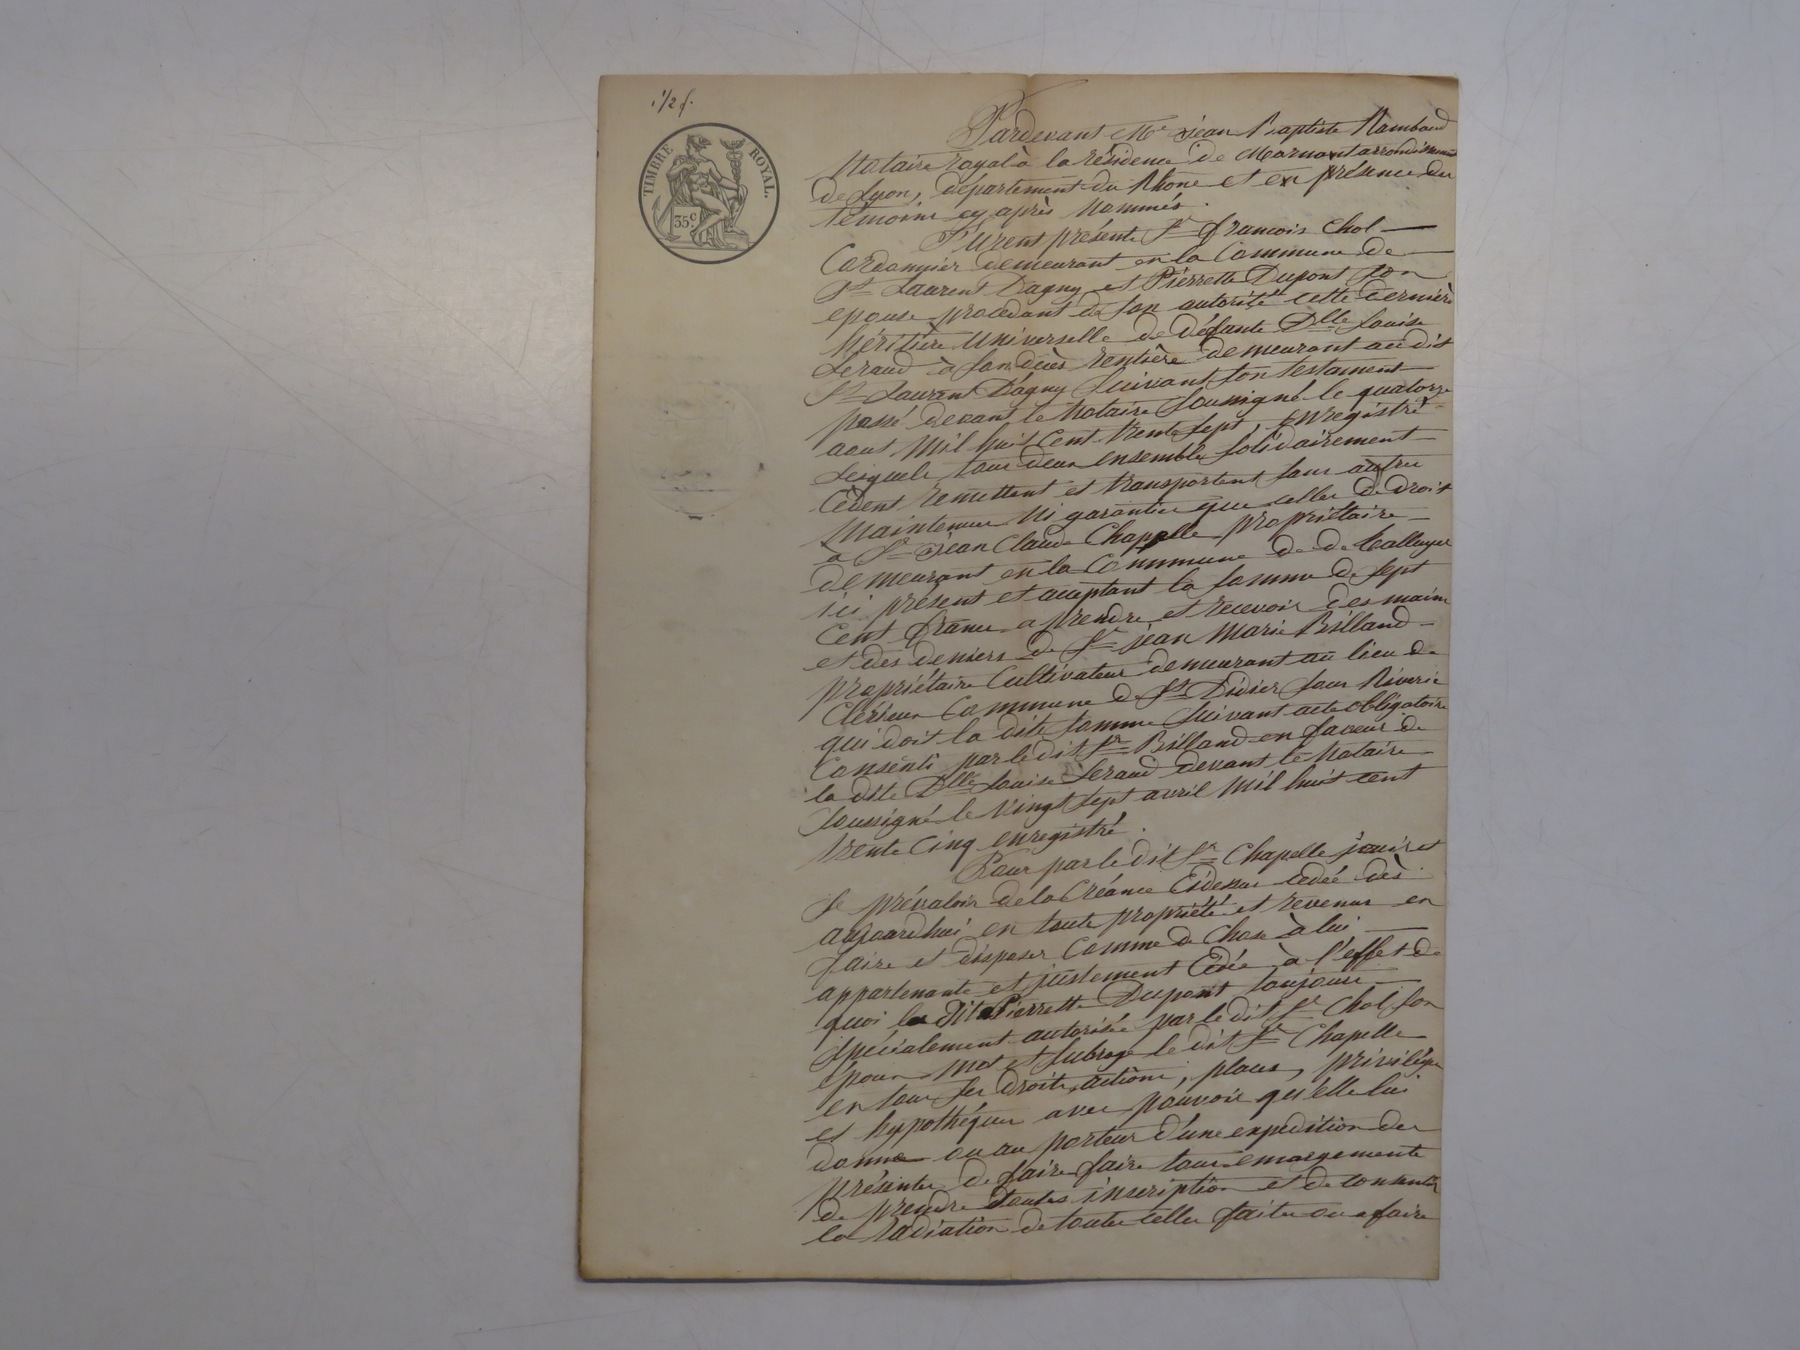 1/2 f.
TIMBRE ROYAL.
35c
Pardevant Me jean Baptiste Rambaud
Notaire royal à la résidence de Mornant arrondissement
de Lyon, département du Rhône et en présence des
témoins cy après nommés.
Furent présents Sr francois Chol
Cordonnier demeurant en la Commune de
St Laurent Dagny et Pièrrette Dupont son
epouse procedant de son autorité cette dernière
héritière universelle de défunte Dlle Louise
Feraud à son décès rentière demeurant au dit
St Laurent Dagny suivant son testament
passé devant le Notaire soussigné le quatorze
aout Mil huit Cent trente sept, enregistré
Lesquels tous deux ensemble solidairement
Cèdent remettent et transportent sans autres
Maintenue Ni garanties que celles de droit
à Sr jean Claude Chapelle propriétaire
demeurant en la Commune de
ici présent et acceptant la somme de sept
Cent francs a prendre et recevoir des mains
et des deniers de Sr jean Marie Billand
propriétaire Cultivateur demeurant au lieu de
Commune de St Didier sous Riverie
qui doit la dite somme suivant acte obligatoire
Consenti par le dit Sr Billand en faveur de
la dite Dlle Louise Feraud devant le Notaire
soussigné le vingt sept avril Mil huit cent
trente Cinq enregistré.
Pour par le dit Sr Chapelle jouir et
se prévaloir de la Créance Cidessus cedée dès
aujourdhui en toute propriété et revenus en
faire et disposer Comme de chose à lui
appartenante et justement Cédée à l'effet de
quoi la dite Pierrette Dupont toujours
spécialement autorisée par le dit Sr Chol son
époux met et subroge le dit Sr Chapelle
en tous ses droits, actions, places, privilèges
et hypothéques avec pouvoir qu'elle lui
donne ou au porteur d'une expedition des
présentes de faire faire tous émargements
de prendre toutes inscription et de consentir
la radiation de toutes celles faites ou a faire